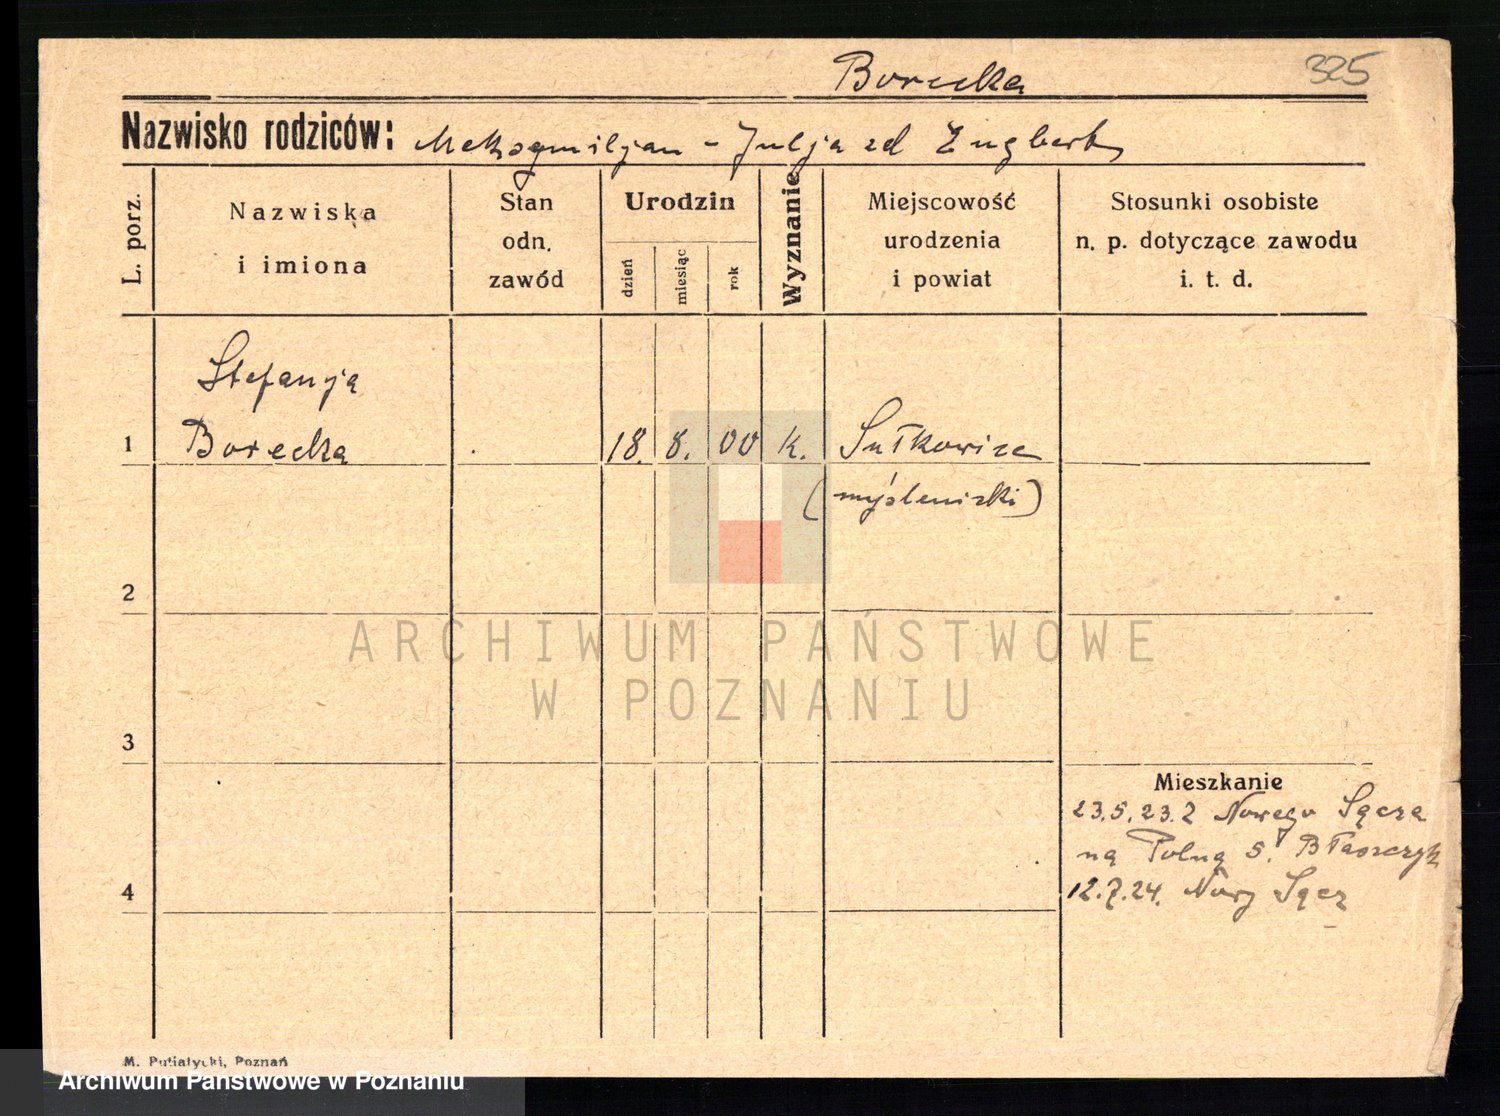 Borecka
325
Nazwisko rodziców: Maksymiljan - Julja zd Engbert
L. porz.
Nazwiska
i imiona
Stan
odn.
zawód
Urodzin
dzień
miesiąc
rok
Wyznanie
Miejscowość
urodzenia
i powiat
Stosunki osobiste
n. p. dotyczące zawodu
i. t. d.
Stefanja
1 Borecka 18. 8. 00 k. Sułkowice
(myślenicki)
2
ARCHIWUM PAŃSTWOWE
W POZNANIU
3
Mieszkanie
23.5.23. z Nowego Sącza
na Polną 5. Błaszczyk
4 12.7.24. Nowy Sącz
M. Putiatycki, Poznań
Archiwum Państwowe w Poznaniu